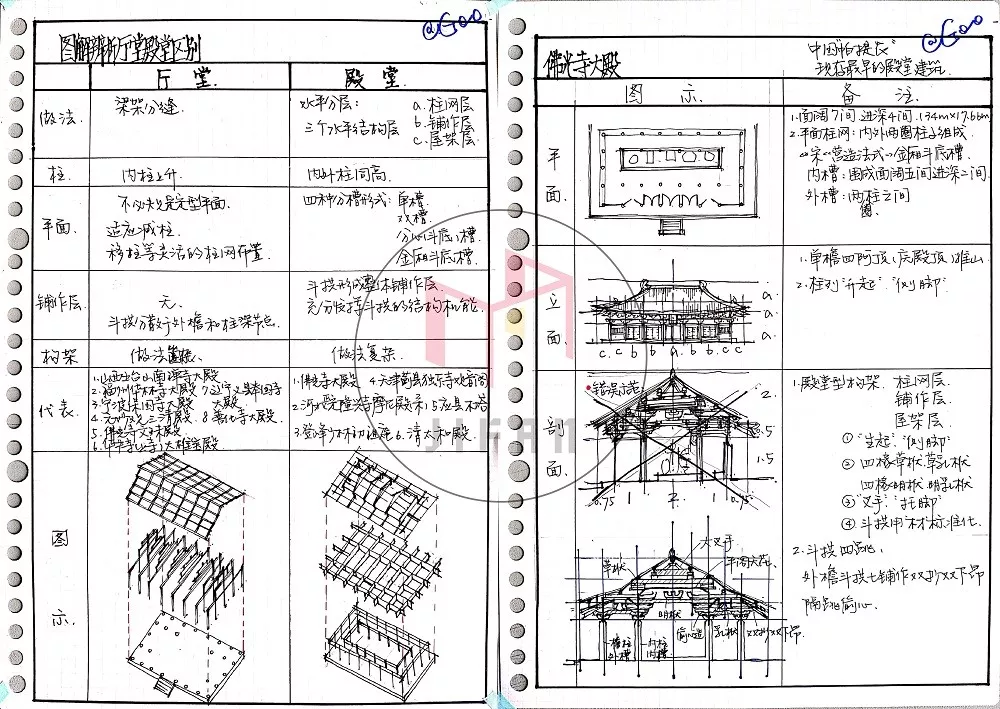 图解辨析厅堂殿堂区别
厅堂
殿堂
做法
梁架分缝.
水平分层:
三个水平结构层
a.柱网层
b.铺作层
c.屋架层
柱
内柱上升
内外柱同高.
平面.
不必拘定型平面.
适应减柱
移柱等灵活的柱网布置
四种分槽形式:单槽.
双槽.
分心斗底槽.
金厢斗底槽
铺作层
无.
斗拱分散于外檐和柱架节点.
斗拱形成整体铺作层.
充分发挥斗拱的结构机能.
构架
做法简捷.
做法复杂.
代表.
1.山西五台山南禅寺大殿
2.福州华林寺大殿
大殿
8.善化寺大殿
1.佛光寺大殿
4.天津蓟县独乐寺观音阁
5.应县木塔
6.清太和殿.
图
示.
佛光寺大殿
中国"帕提农"
现存最早的殿堂建筑.
图示
备注
平
面.
1.面阔7间进深4间.34m×17.66m
2.平面柱网:内外两圈柱子组成
宋《营造法式》金厢斗底槽.
内槽:围成面阔五间进深二间.
外槽:两柱之间
圈.
立
面.
a.
a.
a.
c. c b. b a b b c c
1.单檐四阿顶.庑殿顶.
2.柱列"升起""侧脚"
剖
面.
错误示范
2.
1.5
1.5
0.75 1 2. 1 0.75
1.殿堂型构架. 柱网层.
铺作层.
屋架层.
①"生起""侧脚"
②四椽草栿草乳栿
四椽明栿.明乳栿
③"叉手""托脚"
④斗拱用"材"标准化.
2.斗拱四跳.
外檐斗拱七铺作双抄双下昂
隔跳偷心.
大叉手
草栿
平闇天花.
明栿
偷心造
乳栿
双抄双下昂.
檐柱
外槽
内柱
内槽